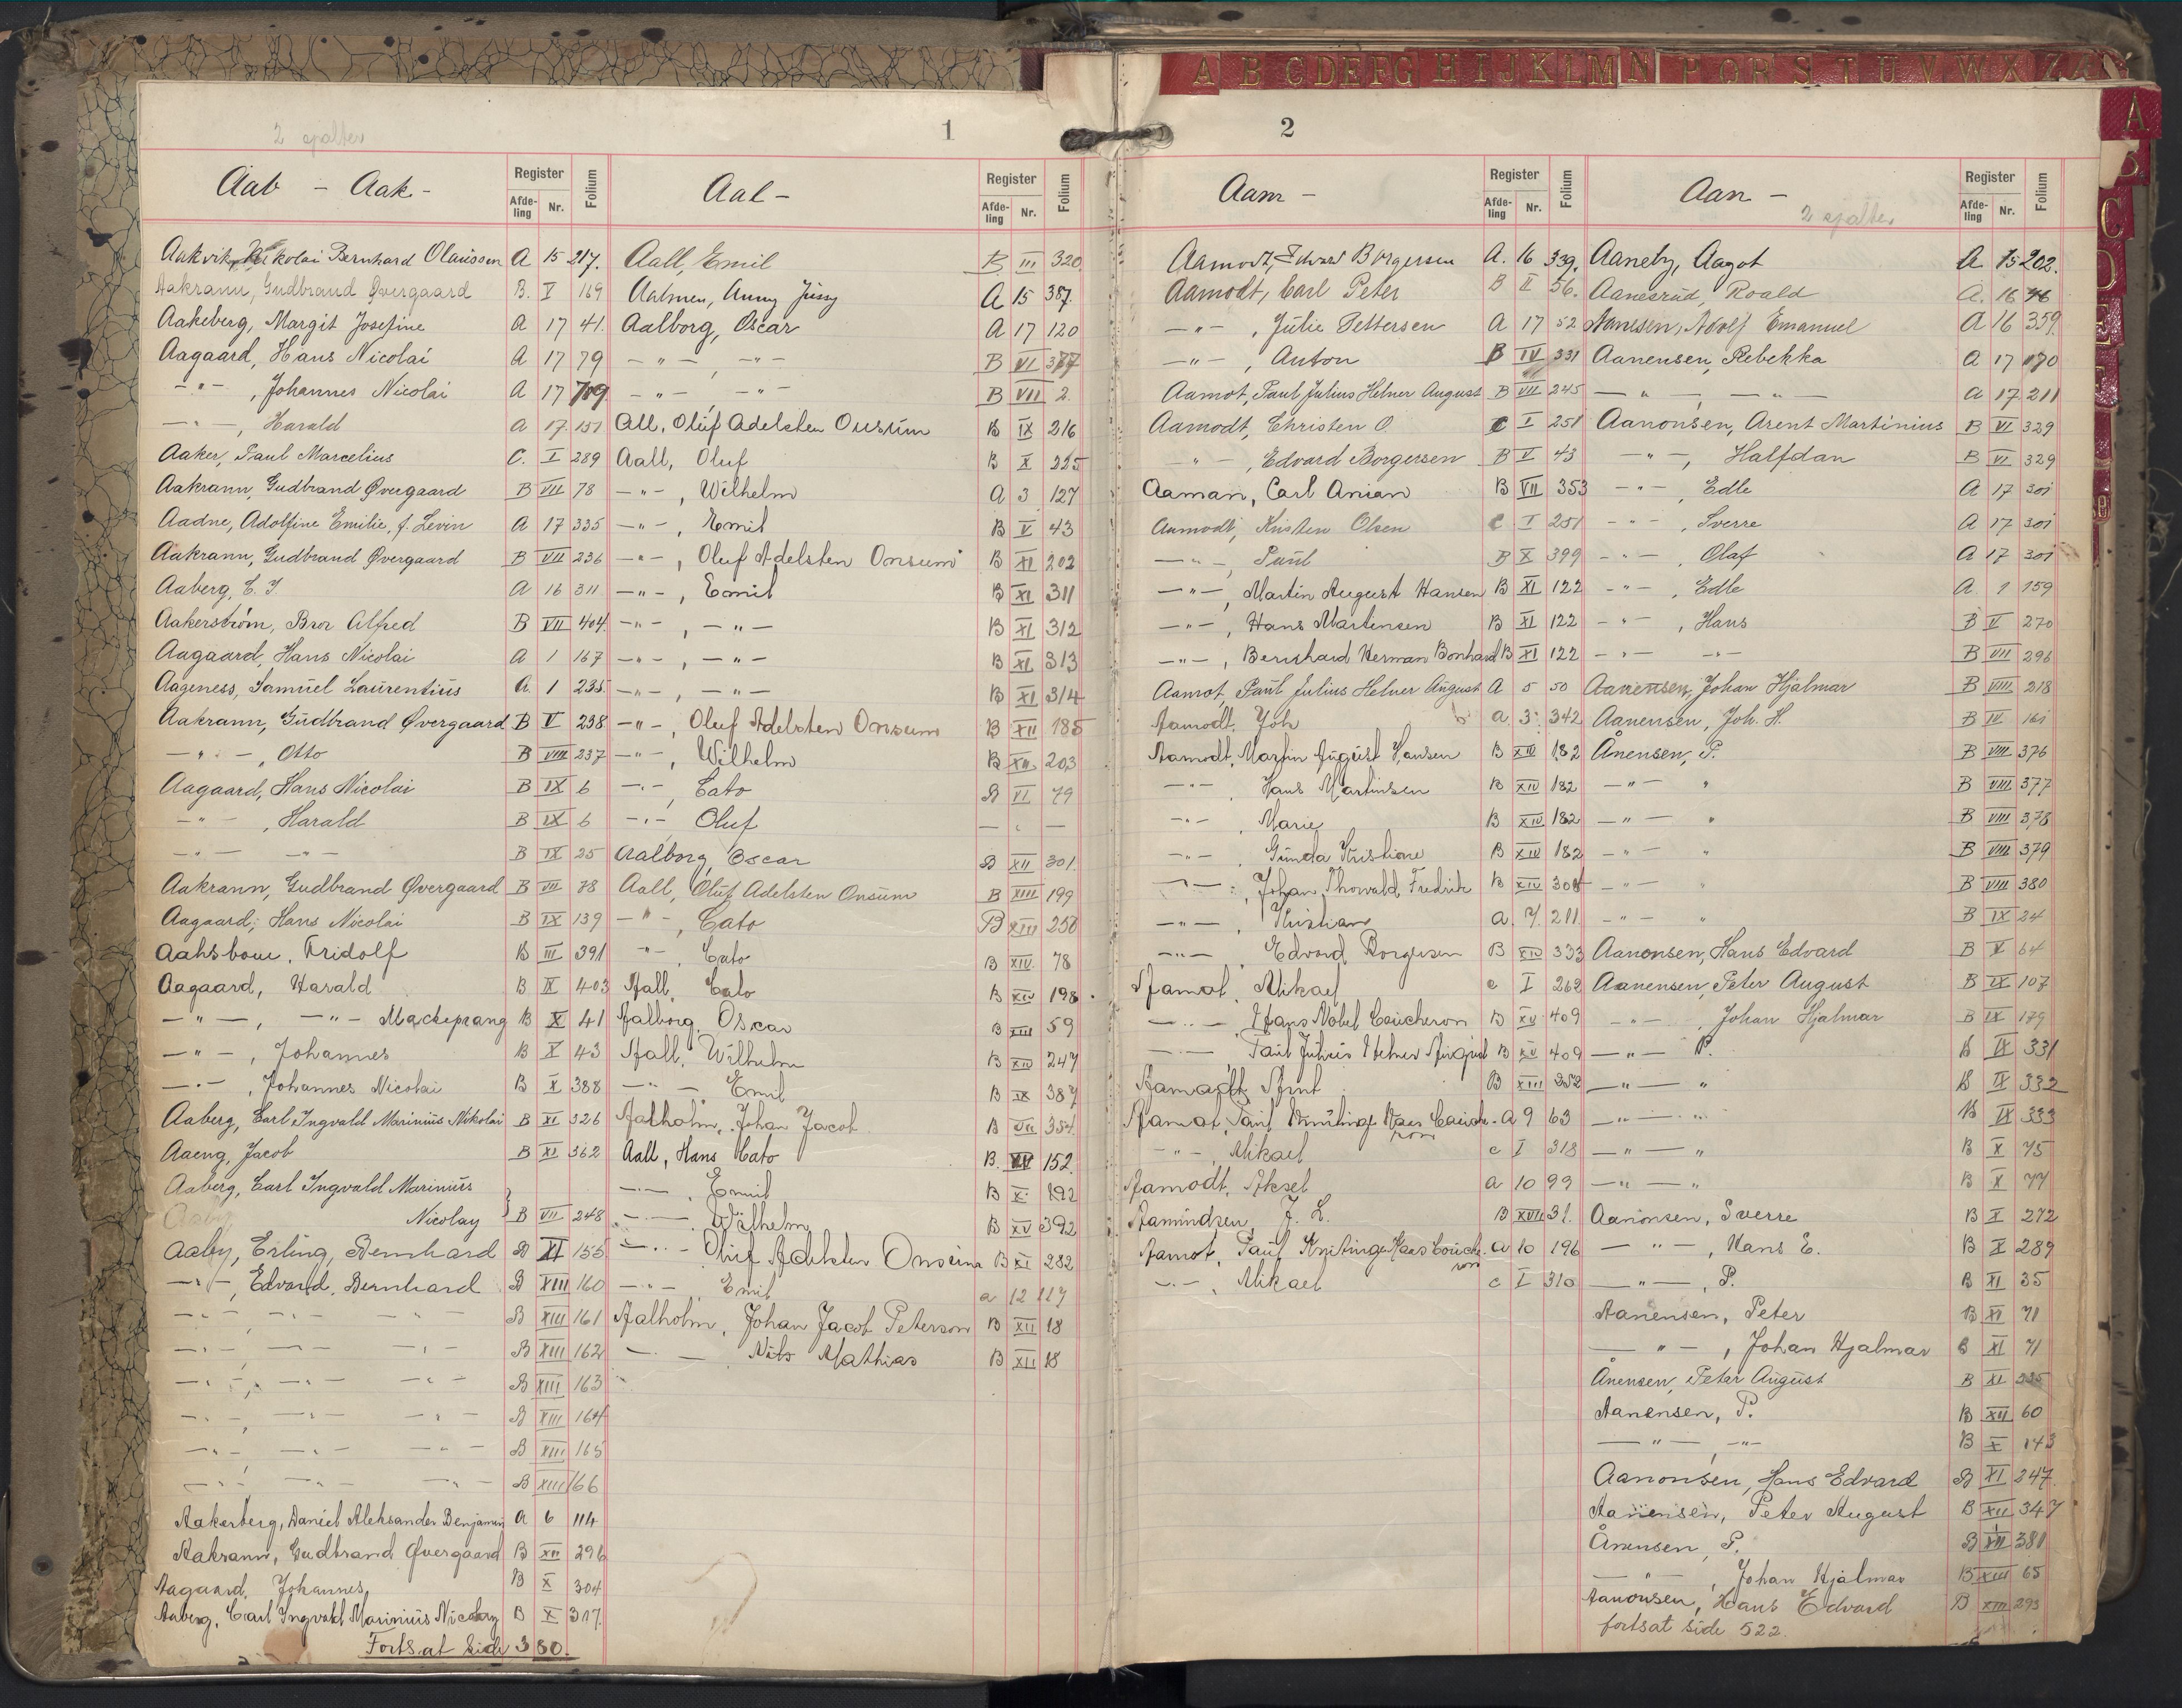 A B C D E F G H I J K L M N P Q R S T U V W X
2 spalter
1
Aab - Aak -
Register
Afde-ling Nr. Folium
Aakvik, Nikolai Bernhard Olaussen A 15 217.
Aakrann, Gudbrand Øvergaard B. V 169
Aakeberg, Margit Josefine A 17 41.
Aagaard, Hans Nicolai A 17 79
-"-, Johannes Nicolai A 17 79
-"-, Harald A 17. 151
Aaker, Paul Marcelius C. I 289
Aakrann, Gudbrand Øvergaard B VII 78
Aadne, Adolfine Emilie, f. Levin A 17 335
Aakrann, Gudbrand Øvergaard B VII 236
Aaberg, C. J. A 16 311
Aakerström, Bror Alfred B VII 404.
Aagaard, Hans Nicolai A 1 167
Aageness, Samuel Laurentius A. 1 235.
Aakrann, Gudbrand Øvergaard B V 238
-"-, Otto B VIII 237
Aagaard, Hans Nicolai B IX 6
-"-, Harald B IX 6
-"- -"- B IX 25
Aakrann, Gudbrand Øvergaard B VII 78
Aagaard, Hans Nicolai B IX 139
Aahsbom, Fridolf B III 391
Aagaard, Harald B IX 403
-"-, -"- Mackeprang B X 41
-"-, Johannes B X 43
-"-, Johannes Nicolai B X 388
Aaberg, Carl Ingvald Marinius Nikolai B XI 326
Aaeng, Jacob B XI 362
Aaberg, Carl Ingvald Marinius
Nicolay } B VII 248
Aaby, Erling, Bernhard B XI 155
-"-, Edvard, Bernhard B XIII 160
-"- -"- -"- B XIII 161
-"- -"- -"- B XIII 162
-"-, -"- -"- B XIII 163
-"-, -"- -"- B XIII 164
-"-, -"- -"- B XIII 165
-"-, -"- -"- B XIII 166
Aakerberg, Daniel Aleksander Benjamin A 6 114
Aakrann, Gudbrand Øvergaard B XII 296
Aagaard, Johannes, B X 304
Aaberg, Carl Ingvald Marinius Nicolay B X 317.
Forts.at side 380.
Aal -
Register
Afde-ling Nr. Folium
Aall, Emil B III 320
Aalmen, Anny Jussy A 15 387.
Aalborg, Oscar A 17 120
-"-, -"- B VI 377
-"-, -"- B VII 2.
All, Oluf Adelsten Onsum B IX 216
Aall, Oluf B X 225
-"-, Wilhelm A 3 127
-"-, Emil B V 43
-"-, Oluf Adelsten Onsum B XI 202
-"-, Emil B XI 311
-"-, -"- B XI 312
-"-, -"- B XI 313
-"-, -"- B XI 314
-"-, Oluf Adelsten Onsum B XII 185
-"-, Wilhelm B XII 203
-"-, Cato B VI 79
-"- Oluf - " -
Aalborg, Oscar B XII 301.
Aall, Oluf Adelsten Onsum B XIII 199
-"-, Cato B XIII 258
-"-, Cato B XIV. 78
Aall, Cato B XIV 198
Aalborg, Oscar B XIII 59
Aall, Wilhelm B XIV 247
-"- Emil B IX 387
Aalholm, Johan Jacob B VII 354.
Aall, Hans Cato B. XV 152.
-"-, Emil B X. 192
-"-, Wilhelm B XV 392
-"- Oluf Adelsten Onsum B XI 282
-"-, Emil a 12 117
Aalholm, Johan Jacob Peterson B XII 18
-"- Nils Mathias B XII 18
2
Aam -
Register
Afde-ling Nr. Folium
Aamodt, Edvard Borgersen A. 16 339.
Aamodt, Carl Peter B II 56.
-"-, Julie Pettersen A 17 52
-"-, Anton B IV 331
Aamot, Paul Julius Helner August B VII 245
Aamodt, Christen O. C I 251
-"-, Edvard Borgersen B V 43
Aaman, Carl Anian B VII 353
Aamodt, Kristen Olsen C I 251
-"-, Paul B X 399
-"-, Martin August Hansen B XI 122
-"-, Hans Martinsen B XI 122
-"-, Bernhard Herman Bonhard B XI 122
Aamot, Paul Julius Helner August A 5 50
Aamodt, Joh a. 3. 342
Aamodt, Martin August Hansen B XIV 182
-"-, Hans Martinsen B XIV 182
-"-, Marie B XIV 182
-"-, Gunda Kristiane B XIV 182
-"-, Johan Thorvald Fredrik B XIV 308
-"-, Kristian a. 7. 211
-"- Edvard Borgersen B XIV 333
Aamot, Mikael c I 262
-"-, Hans Nobel Coucheron B XV 409
-"-, Paul Julius Helner August B XV 409
Aamodt, Arnt B XIII 352
Aamot, Paul Knutinge Haas Coucheron A 9 63
-"-, Mikael c I 318
Aamodt, Aksel a 10 99
Aamundsen, J. L. B XVII 31.
Aamot, Paul Knutinge Haas Coucheron a 10 196
-"-, Mikael c I 310
Aan -
2 spalter
Register
Afde-ling Nr. Folium
Aaneby, Aagot A 15 202.
Aanesrud, Roald A. 16 46
Aanesen, Adolf Emanuel A 16 359.
Aanensen, Rebekka A 17 170
-"-, -"- A 17. 211
Aanonsen, Arent Martinius B VI 329
-"-, Halfdan B VI 329
-"-, Edle A 17 301
-"-, Sverre A 17 301
-"-, Olaf A 17 301
-"-, Edle A. 1 159
-"-, Hans B V 270
-"- -"- B VII 296
Aanensen, Johan Hjalmar B VIII 218
Aanensen, Joh. H. B IV 161
Ånensen, P. B VIII 376
-"- " B VIII 377
-"- " B VIII 378
-"- " B VIII 379
-"- " B VIII 380
-"- " B IX 24
Aanonsen, Hans Edvard B V 64
Aanensen, Peter August B IX 107
-"-, Johan Hjalmar B IX 179
-"- P. B IX 331
-"- " B IX 332
-"- " B IX 333
-"- " B X 75
-"- " B X 77
Aanonsen, Sverre B X 272
-"-, Hans E. B X 289
-"-, P. B XI 35
Aanensen, Peter B XI 71
-"-, Johan Hjalmar B XI 71
Ånensen, Peter August B XI 225
Aanensen, P. B XII 60
-"-, -"- B X 143
Aanonsen, Hans Edvard B XI 247.
Aanensen, Peter August B XII 347
Ånensen, P. B XII 381
-"-, Johan Hjalmar B XIII 65
Aanonsen, Hans Edvard B XIII 293
fortsat side 522.
A
C
D
E